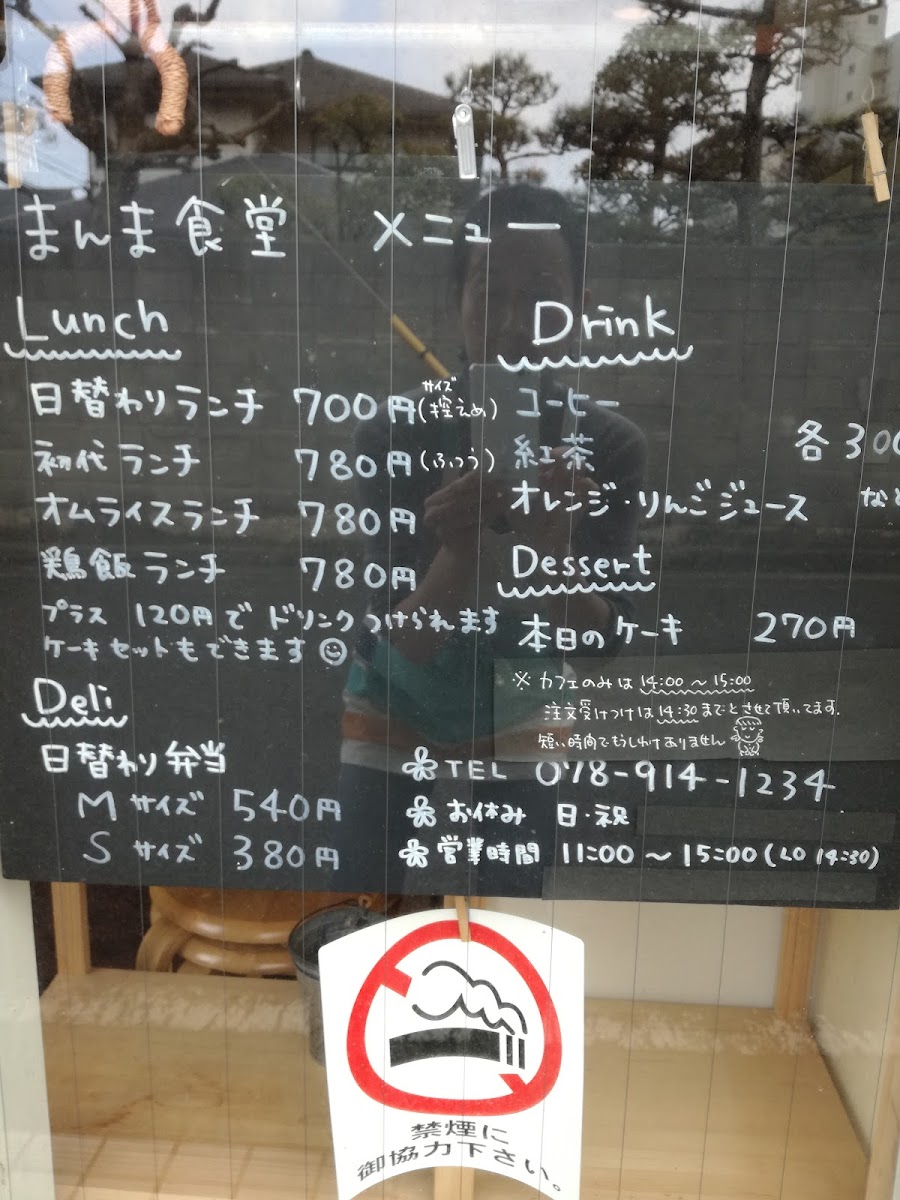 まんま食堂 メニュー
Lunch
日替わりランチ 700円(サイズ控えめ)
初代ランチ 780円(ふつう)
オムライスランチ 780円
鶏飯ランチ 780円
プラス 120円で ドリンクつけられます
ケーキセットもできます
Deli
日替わり弁当
Mサイズ 540円
Sサイズ 380円
Drink
コーヒー
紅茶 各300
オレンジ・りんごジュース など
Dessert
本日のケーキ 270円
※カフェのみは 14:00～15:00
注文受けつけは14:30までとさせて頂いてます.
短い時間でもうしわけありません
TEL 078-914-1234
お休み 日・祝
営業時間 11:00～15:00(LO 14:30)
禁煙に
御協力下さい。